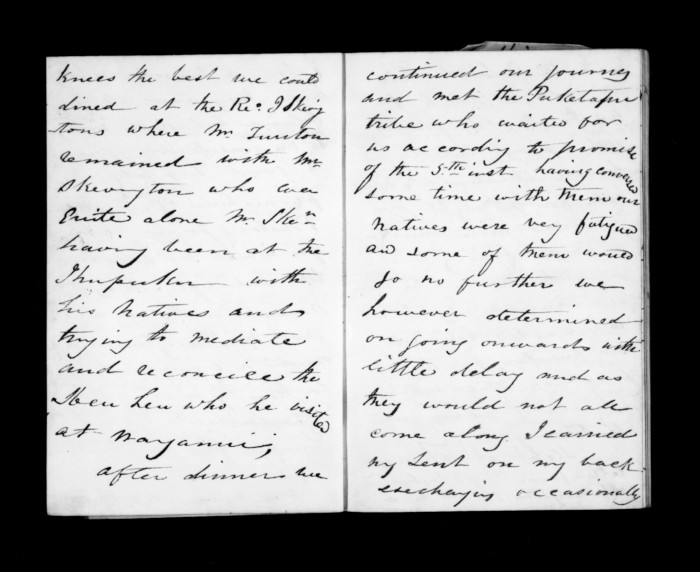 knees the best we could
dined at the Rev. J Skiving
tons where Mr. Turton
remained with Mrs
Skevington who was
Quite alone Mr. Sken
having been at the
with
his natives and
trying to mediate
and reconcile the
heu heu who he visited
at
after dinner we
continued our journey
and met the Puketapu
tribe who waited for
us according to promise
of the 5th inst having conversed
some time with them our
natives were very fatigued
and some of them would
go no further we
however determined
on going onwards with
little delay and as
they would not all
come along I carried
my tent on my back
exchanging occasionally